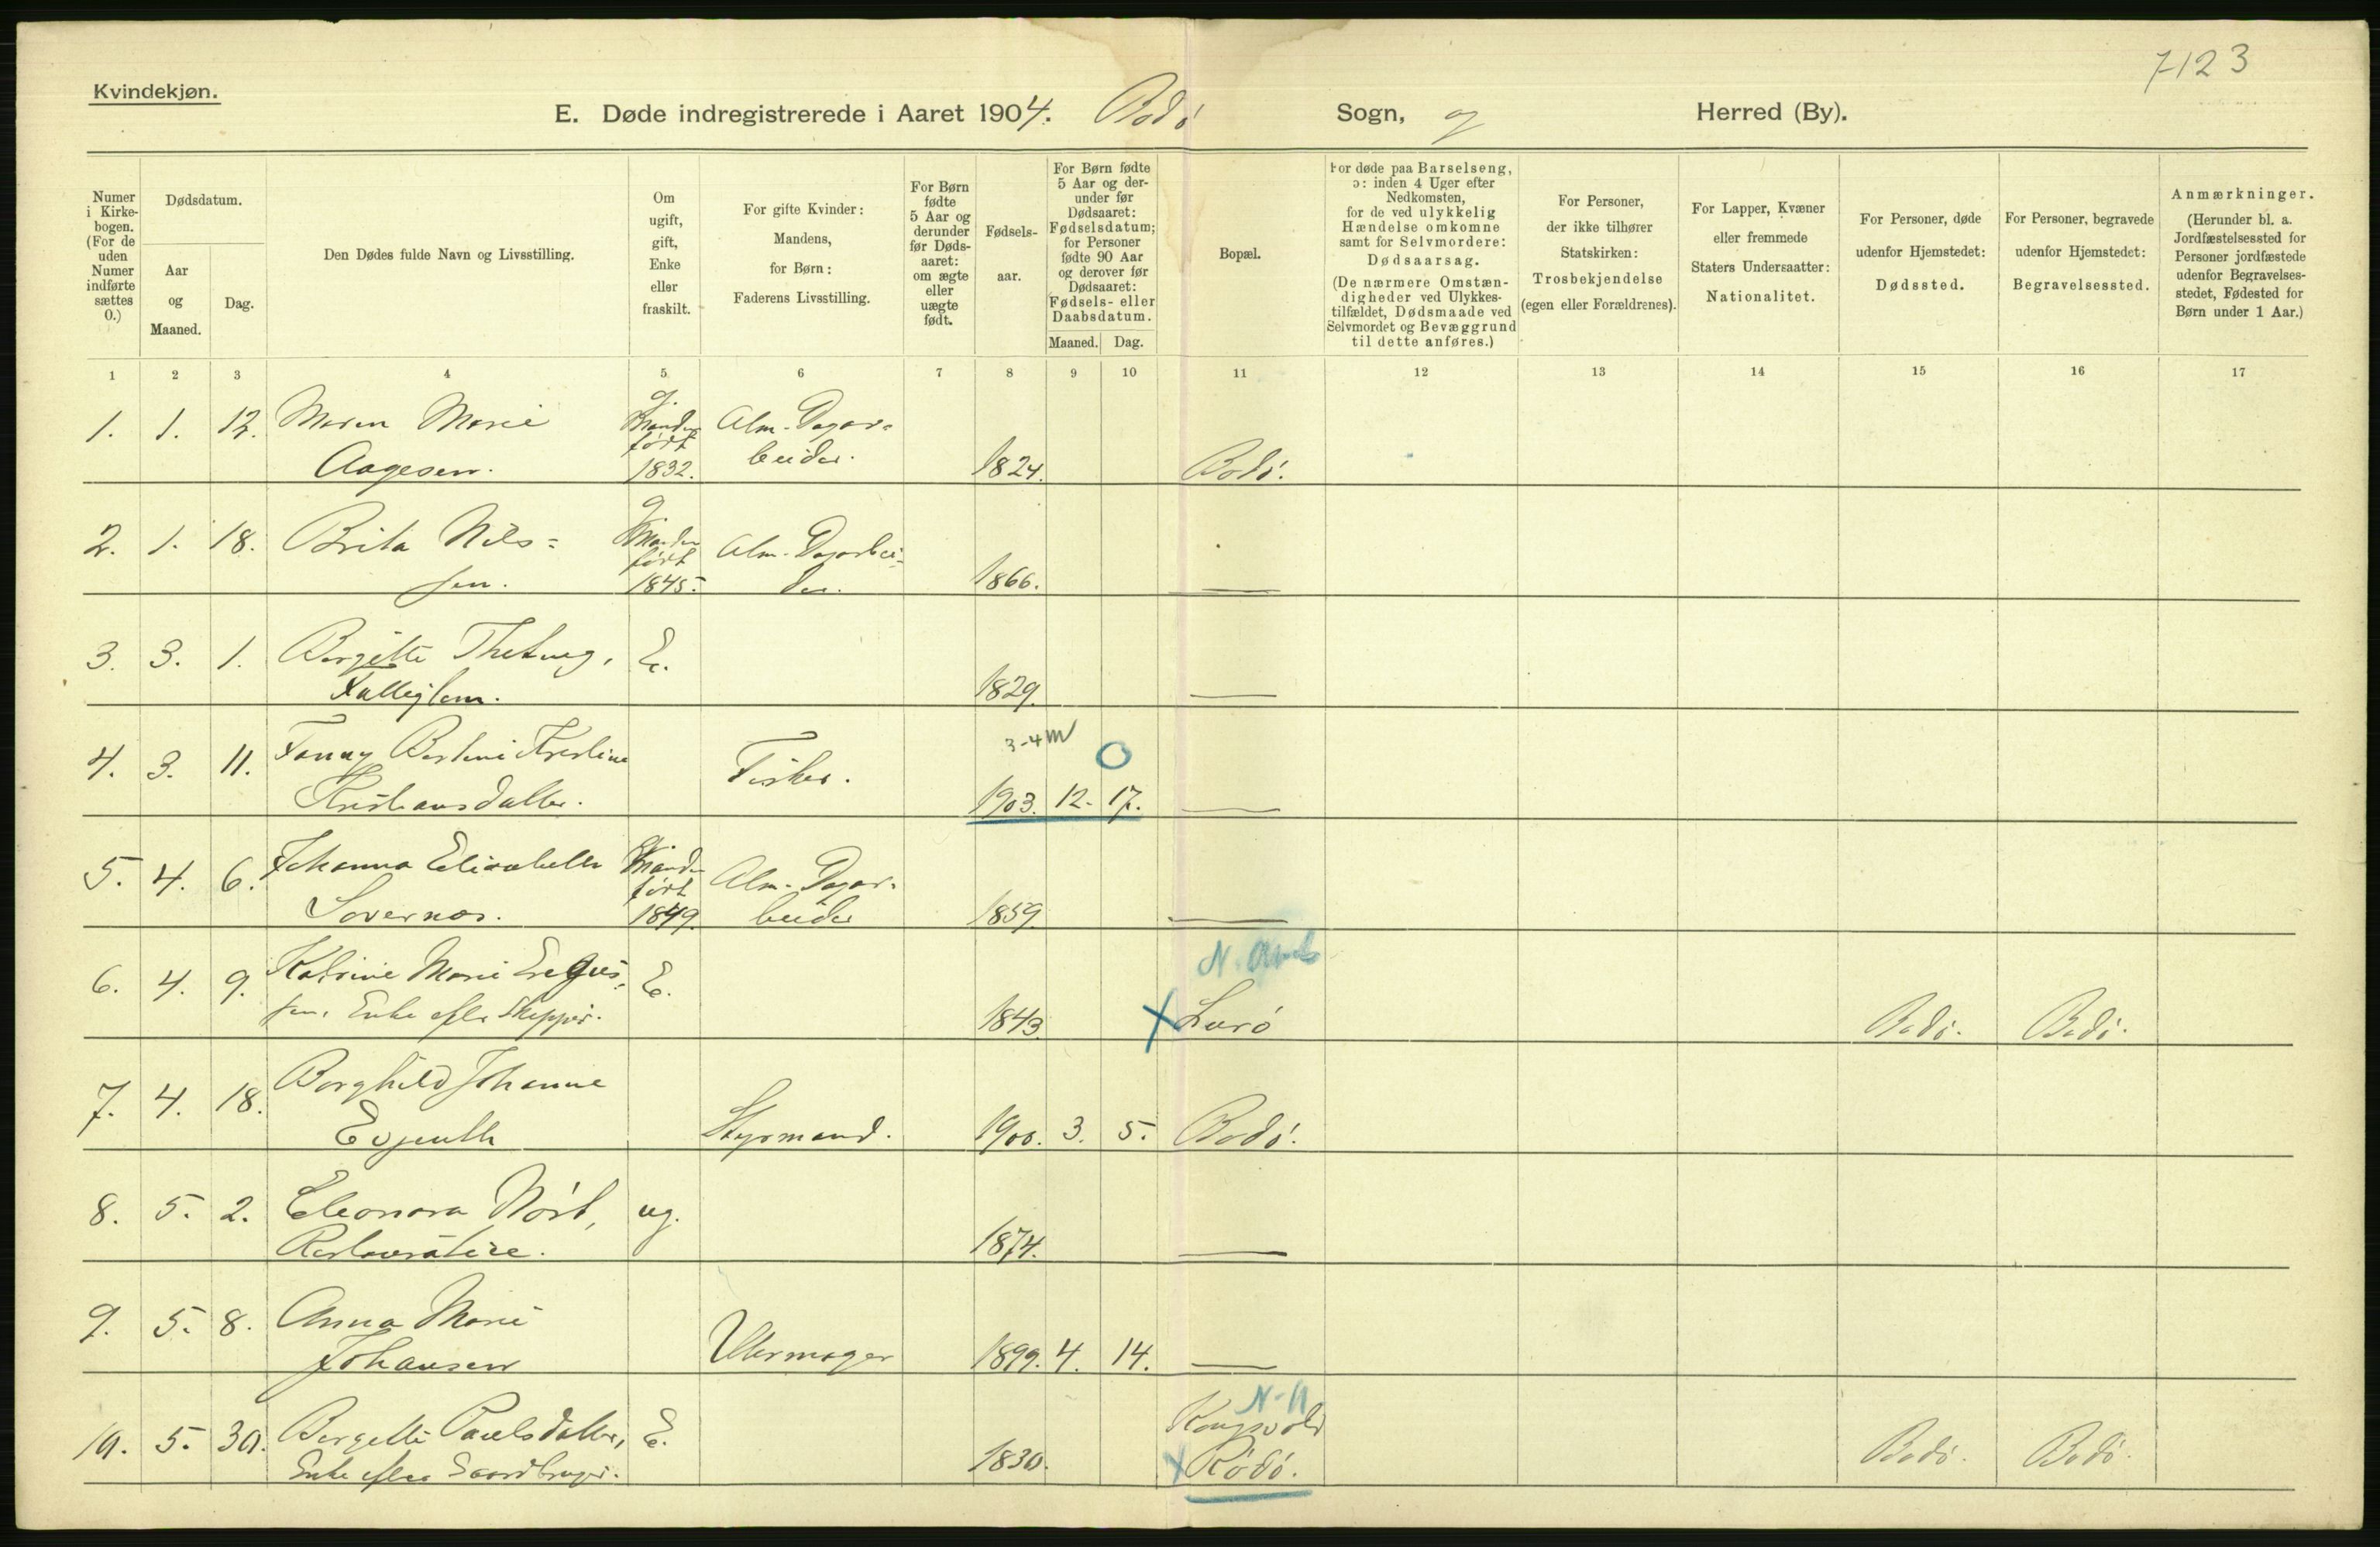 7123
Kvindekjøn.
E. Døde indregistrerede i Aaret 1904. Bodø Sogn, og Herred (By).
Numer i Kirkebogen. (For de uden Numer indførte sættes 0.)
Dødsdatum.
Aar og Maaned.
Dag.
Den Dødes fulde Navn og Livsstilling.
Om ugift, gift, Enke eller fraskilt.
For gifte Kvinder: Mandens, for Børn: Faderens Livsstilling.
For Børn fødte 5 Aar og derunder før Dødsaaret: om ægte eller uægte født.
Fødselsaar.
For Børn fødte 5 Aar og derunder før Dødsaaret: Fødselsdatum; for Personer fødte 90 Aar og derover før Dødsaaret: Fødsels- eller Daabsdatum.
Maaned. Dag.
Bopæl.
For døde paa Barselseng, ɔ: inden 4 Uger efter Nedkomsten, for de ved ulykkelig Hændelse omkomne samt for Selvmordere: Dødsaarsag.
(De nærmere Omstændigheder ved Ulykkestilfældet, Dødsmaade ved Selvmordet og Bevæggrund til dette anføres.)
For Personer, der ikke tilhører Statskirken: Trosbekjendelse (egen eller Forældrenes).
For Lapper, Kvæner eller fremmede Staters Undersaatter: Nationalitet.
For Personer, døde udenfor Hjemstedet: Dødssted.
For Personer, begravede udenfor Hjemstedet: Begravelsessted.
Anmærkninger. (Herunder bl. a. Jordfæstelsessted for Personer jordfæstede udenfor Begravelsesstedet, Fødested for Børn under 1 Aar.)
1 2 3 4 5 6 7 8 9 10 11 12 13 14 15 16 17
1. 1. 12. Maren Marie g. Manden Alm. Dagar-
Aagesen. født 1832. beider. 1824. Bodø.
2. 1. 18. Brita Nils= g. Manden Alm. Dagarbei-
sen. født 1845. der. 1866. —
3. 3. 1. Bergitte E.
1829. —
4. 3. 11. Fanny Fisker. 3-4 m
Kristiansdatter. 1903. 12. 17. —
5. 4. 6. Johanna Elisabeth g. Manden Alm. Dagar-
født 1849. beider 1859. —
6. 4. 9. Katrine Marie E. N. Amt
sen, Enke efter Skipper. 1843. Lurø Bodø. Bodø.
7. 4. 18. Borghild Johanne
Evjenth Styrmand. 1900. 3. 5. Bodø.
8. 5. 2. Eleonora ug.
1874. —
9. 5. 8. Anna Marie
Johansen Uhrmager 1899. 4. 14. —
10. 5. 30. Bergitte Paulsdatter, E. N-A Kongsvold
Enke efter Gaardbruger. 1830. Rødø. Bodø. Bodø.